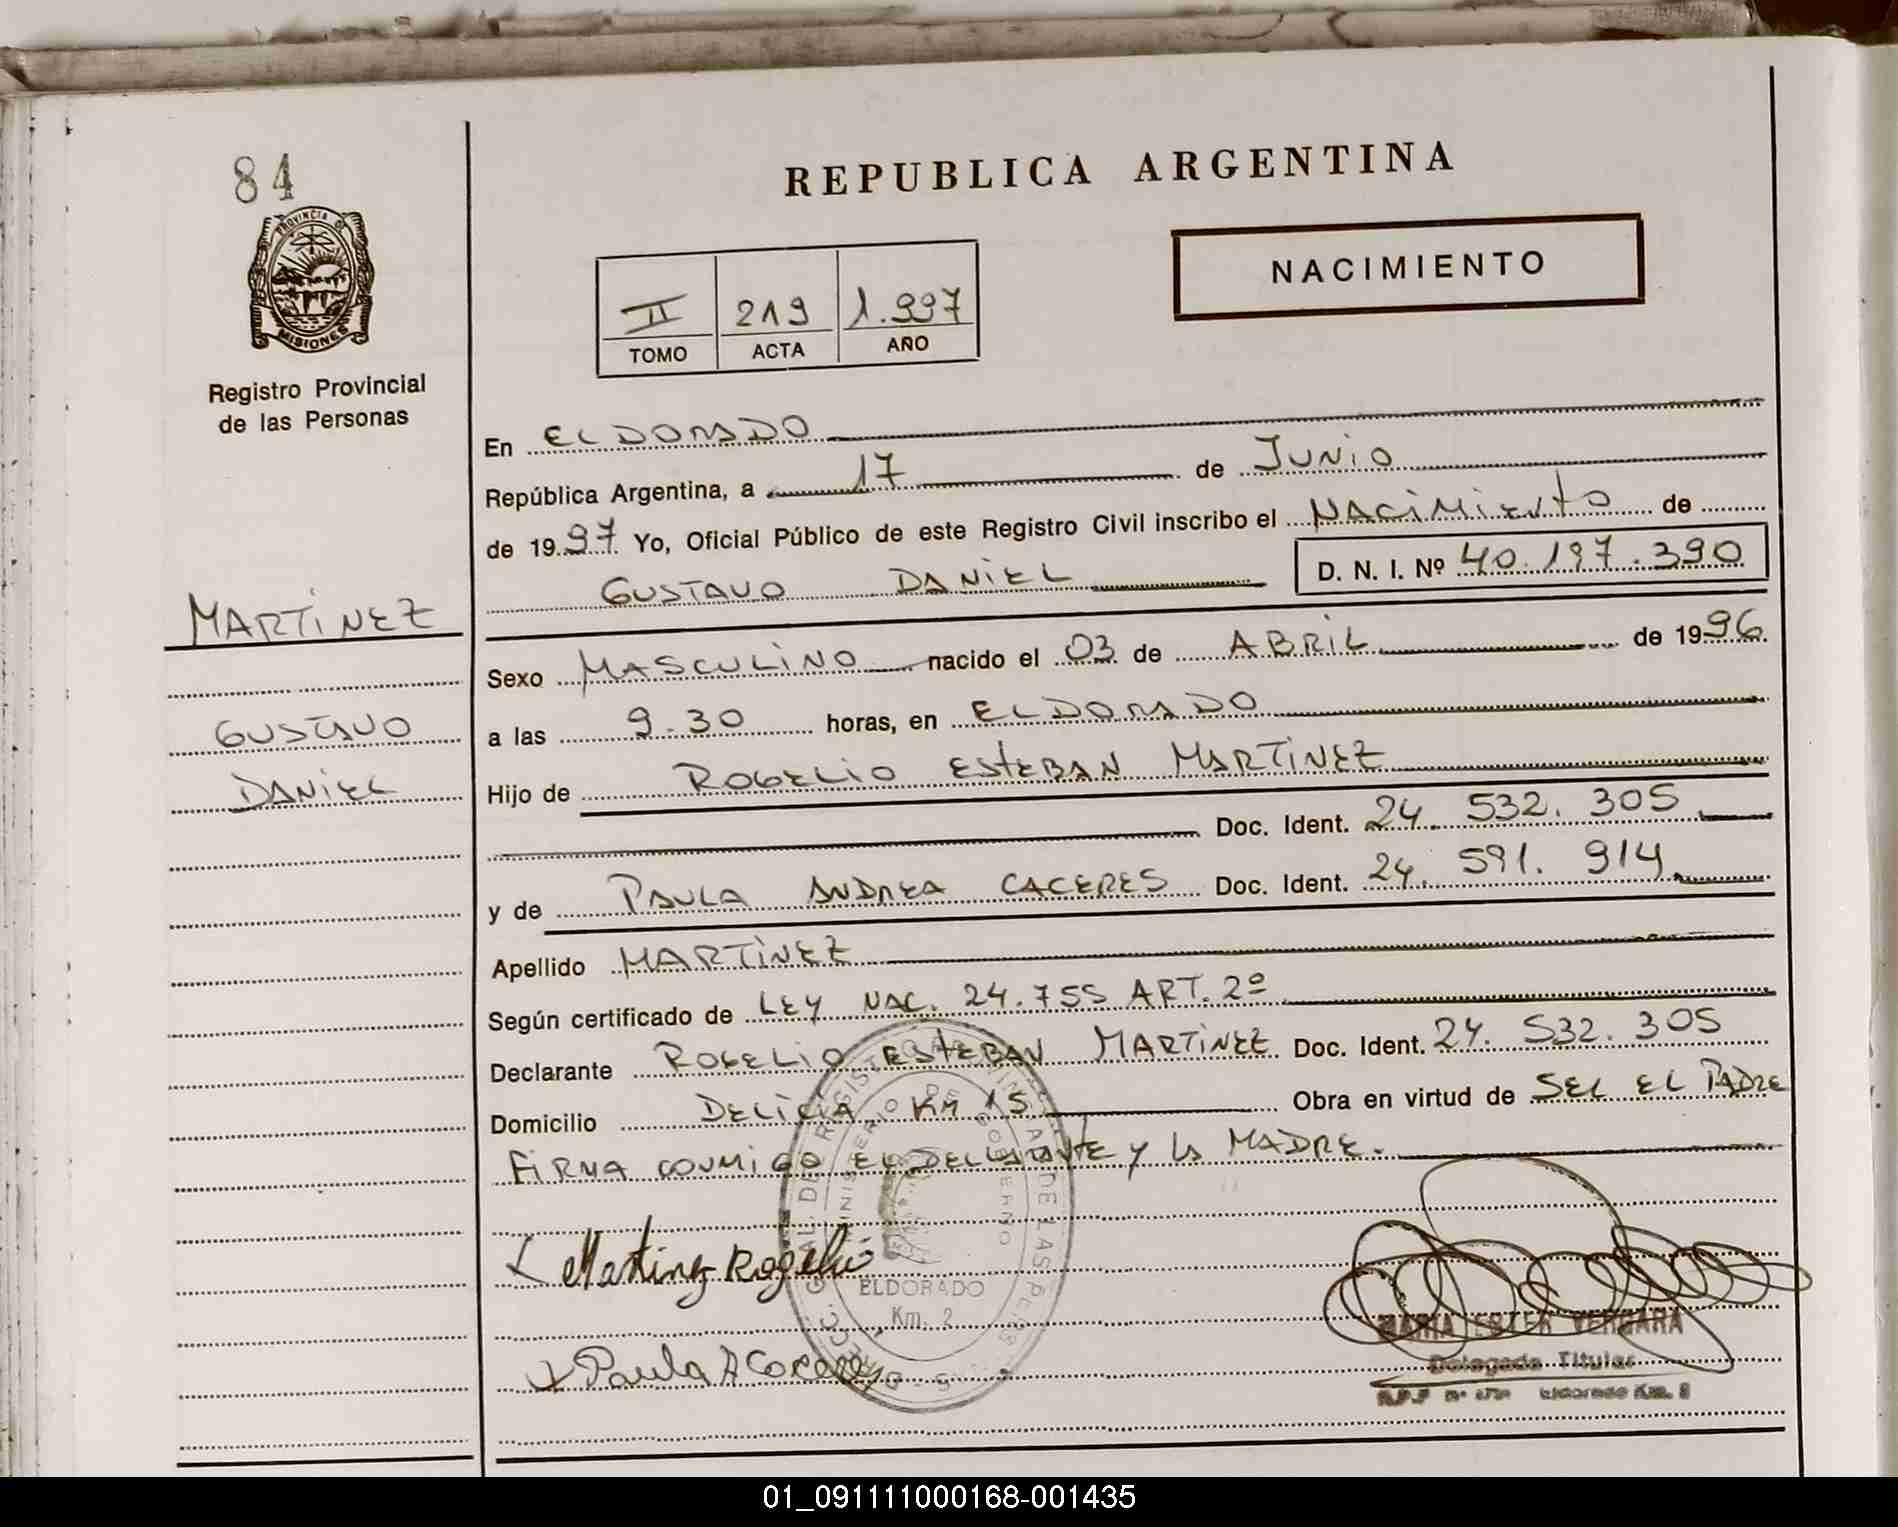 84
PROVINCIA DE
MISIONES
Registro Provincial
de las Personas
MARTINEZ
GUSTAVO
DANIEL
REPUBLICA ARGENTINA
NACIMIENTO
II 219 1.997
TOMO ACTA AÑO
En ELDORADO
República Argentina, a 17 de JUNIO
de 1997 Yo, Oficial Público de este Registro Civil inscribo el NACIMIENTO de
GUSTAVO DANIEL D. N. I. Nº 40.197.390
Sexo MASCULINO nacido el 03 de ABRIL de 1996
a las 9.30 horas, en ELDORADO
Hijo de ROGELIO ESTEBAN MARTINEZ
Doc. Ident. 24.532.305
y de PAULA ANDREA CACERES Doc. Ident. 24.591.914
Apellido MARTINEZ
Según certificado de LEY NAC. 24.755 ART. 2º
Declarante ROGELIO ESTEBAN MARTINEZ Doc. Ident. 24.532.305
Domicilio DELICIA KM 15 Obra en virtud de SEL EL PADRE
FIRMA CONMIGO EL DECLARANTE Y LA MADRE.
Martinez Rogelio
ELDORADO
Km. 2
Paula A Caceres
MARIA ESTER VERGARA
Delegada Titular
Eldorado Km.
01_091111000168-001435